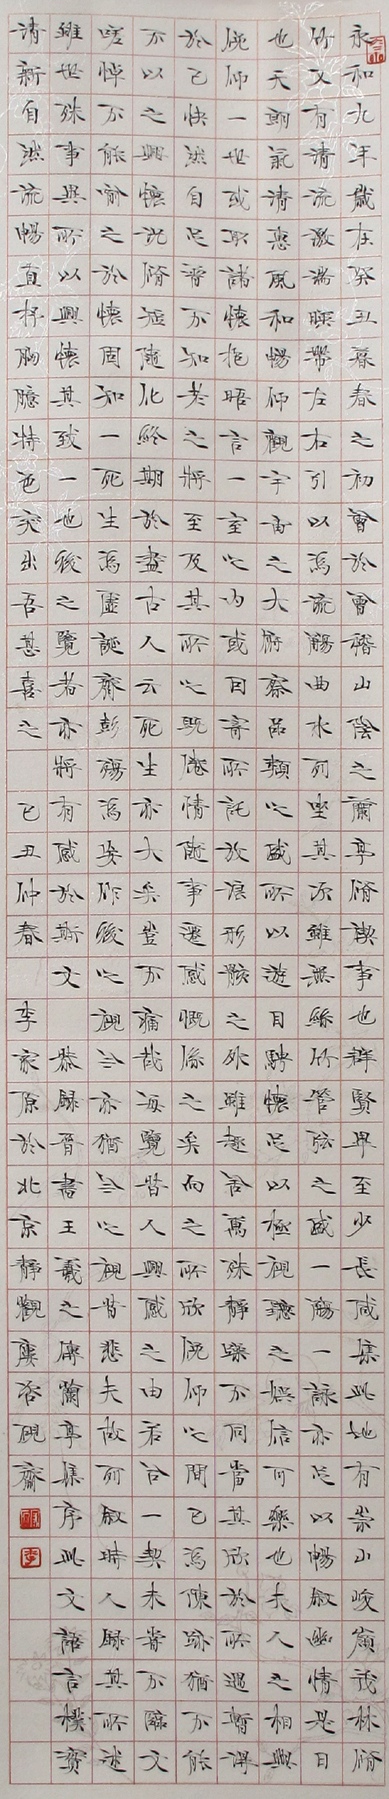 永和九年歲在癸丑暮春之初會於會稽山陰之蘭亭脩禊事也群賢畢至少長咸集此地有崇山峻嶺茂林脩
竹又有清流激湍暎帶左右引以為流觴曲水列坐其次雖無絲竹管弦之盛一觴一詠亦足以暢敘幽情是日
也天朗氣清惠風和暢仰觀宇宙之大俯察品類之盛所以遊目騁懷足以極視聽之娛信可樂也夫人之相與
俛仰一世或取諸懷抱晤言一室之內或因寄所託放浪形骸之外雖趣舍萬殊靜躁不同當其欣於所遇暫得
於己快然自足曾不知老之將至及其所之既倦情隨事遷感慨係之矣向之所欣俛仰之間已為陳跡猶不能
不以之興懷況脩短隨化終期於盡古人云死生亦大矣豈不痛哉每覽昔人興感之由若合一契未嘗不臨文
嗟悼不能喻之於懷固知一死生為虛誕齊彭殤為妄作後之視今亦猶今之視昔悲夫故列敘時人錄其所述
雖世殊事異所以興懷其致一也後之覽者亦將有感於斯文 恭錄晉書王羲之蘭亭集序此文語言樸實
清新自然流暢直抒胸臆特色突出吾甚喜之 己丑仲春 李家原於北京靜觀硯齋